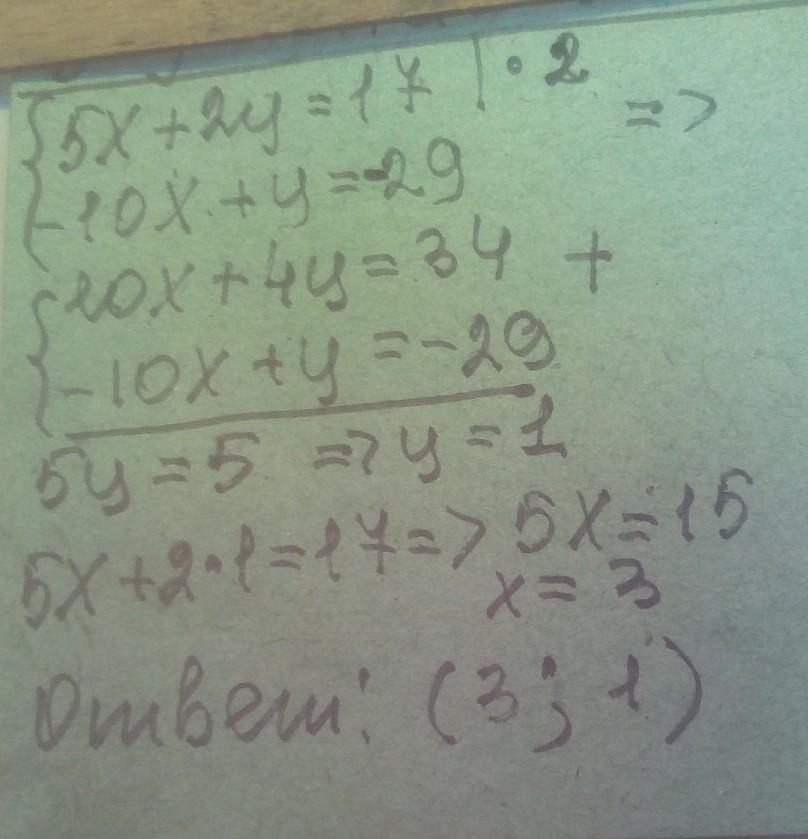 5x+2y=17 |·2
=>
-10x+y=-29
10x+4y=34 +
-10x+y=-29
5y=5 => y=1
5x+2·1=17=> 5x=15
x=3
Ответ: (3; 1)